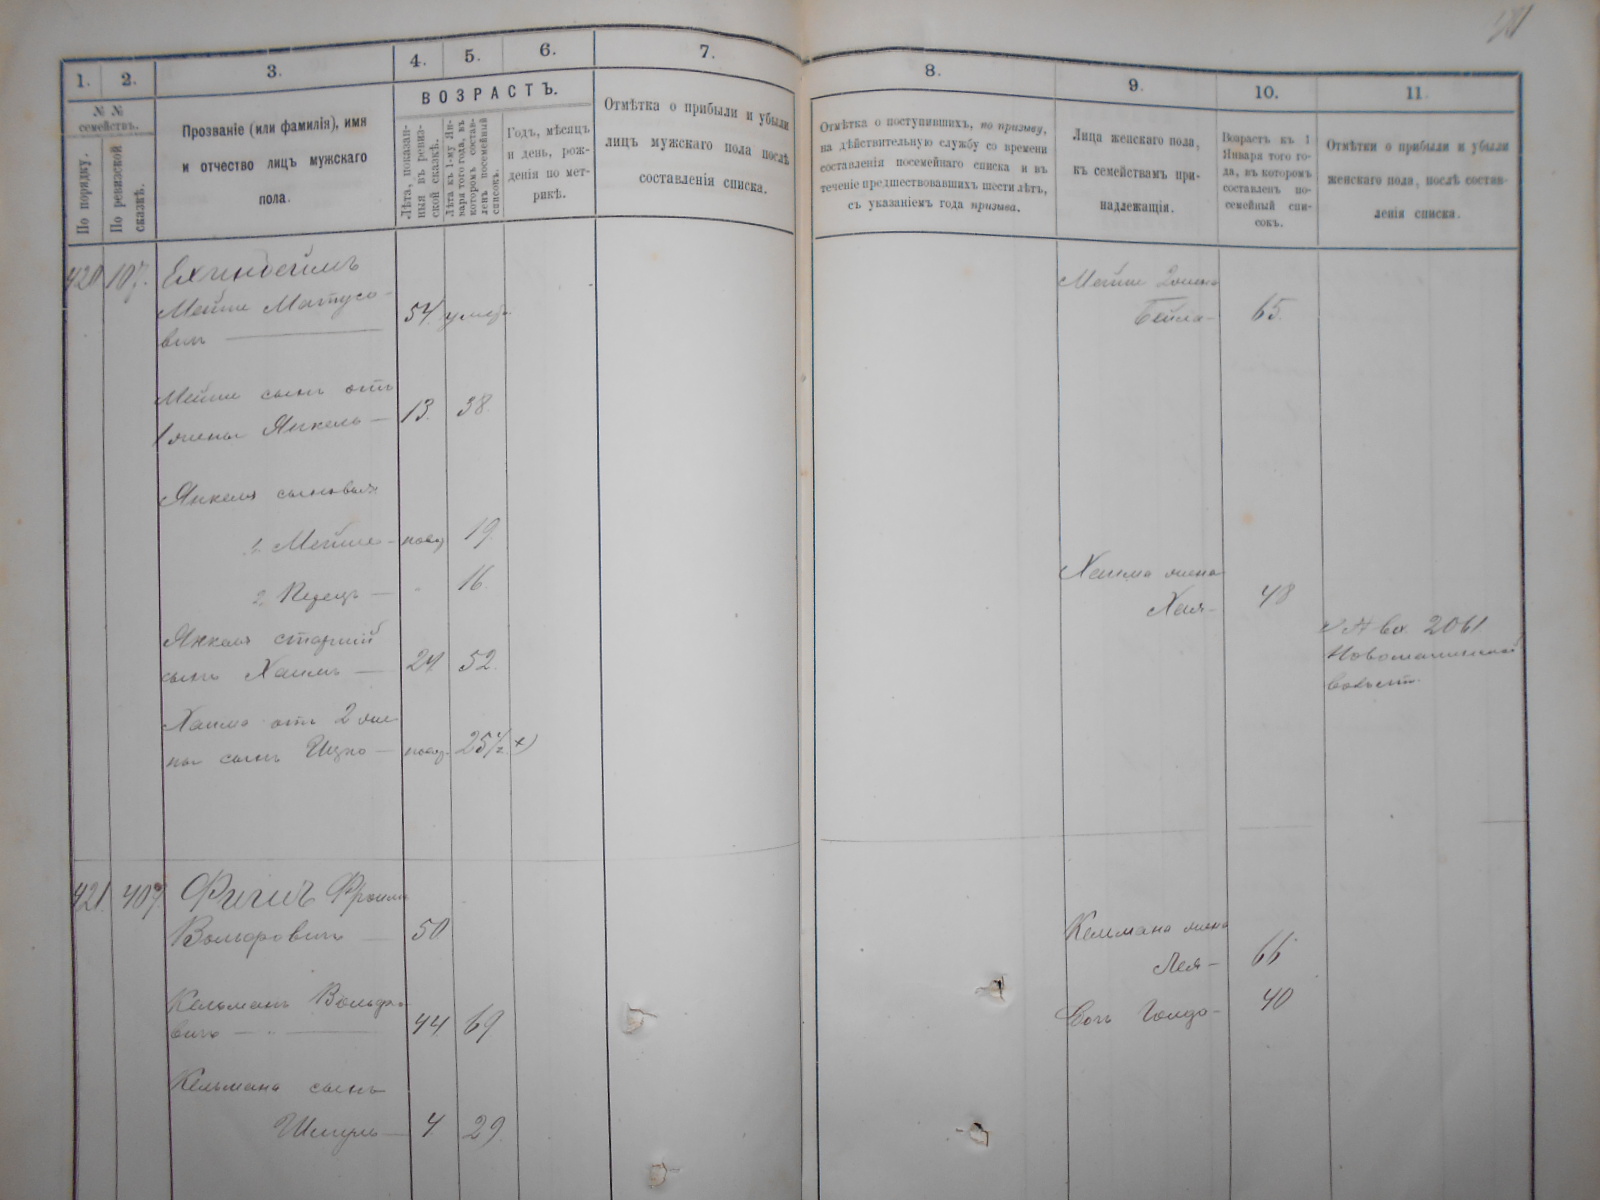 1.
2.
3.
4.
5.
6.
7.
8.
9.
10.
11.
№ №
семействъ.
По порядку.
По ревизской
сказкѣ.
Прозваніе (или фамилія), имя
и отчество лицъ мужскаго
пола.
ВОЗРАСТЪ.
Лѣта, показан-
ныя въ ревиз-
ской сказкѣ.
Лѣта къ 1-му Ян-
варя того года, въ
которомъ состав-
ленъ посемейный
списокъ.
Годъ, мѣсяцъ
и день, рож-
денія по мет-
рикѣ.
Отмѣтка о прибыли и убыли
лицъ мужскаго пола послѣ
составленія списка.
Отмѣтка о поступившихъ, по призыву,
на дѣйствительную службу со времени
составленія посемейнаго списка и въ
теченіе предшествовавшихъ шести лѣтъ,
съ указаніемъ года призыва.
Лица женскаго пола,
къ семействамъ при-
надлежащія.
Возрастъ къ 1
Января того го-
да, въ которомъ
составленъ по-
семейный спи-
сокъ.
Отмѣтки о прибыли и убыли
женскаго пола, послѣ состав-
ленія списка.
420 107.
Мейше Матусо-
вичъ 54
Мейше
Бейла 65.
Мейше сынъ отъ
1 жены Янкель 13. 38.
Янкеля сыновья
1. Мейше 19.
2. Перецъ 16.
Хаима жена
Хая 48
Янкеля старшій
сынъ Хаимъ 24 52.
2061
волост.
Хаима отъ 2 же-
ны сынъ Ицко 25½ х)
421. 407 Фроимъ
Вольфовичъ 50
Кельмана жена
Лея 66
Кельманъ Вольфо-
вичъ 44 69
дочь Голда 40
Кельмана сынъ
Шмуль 4 29